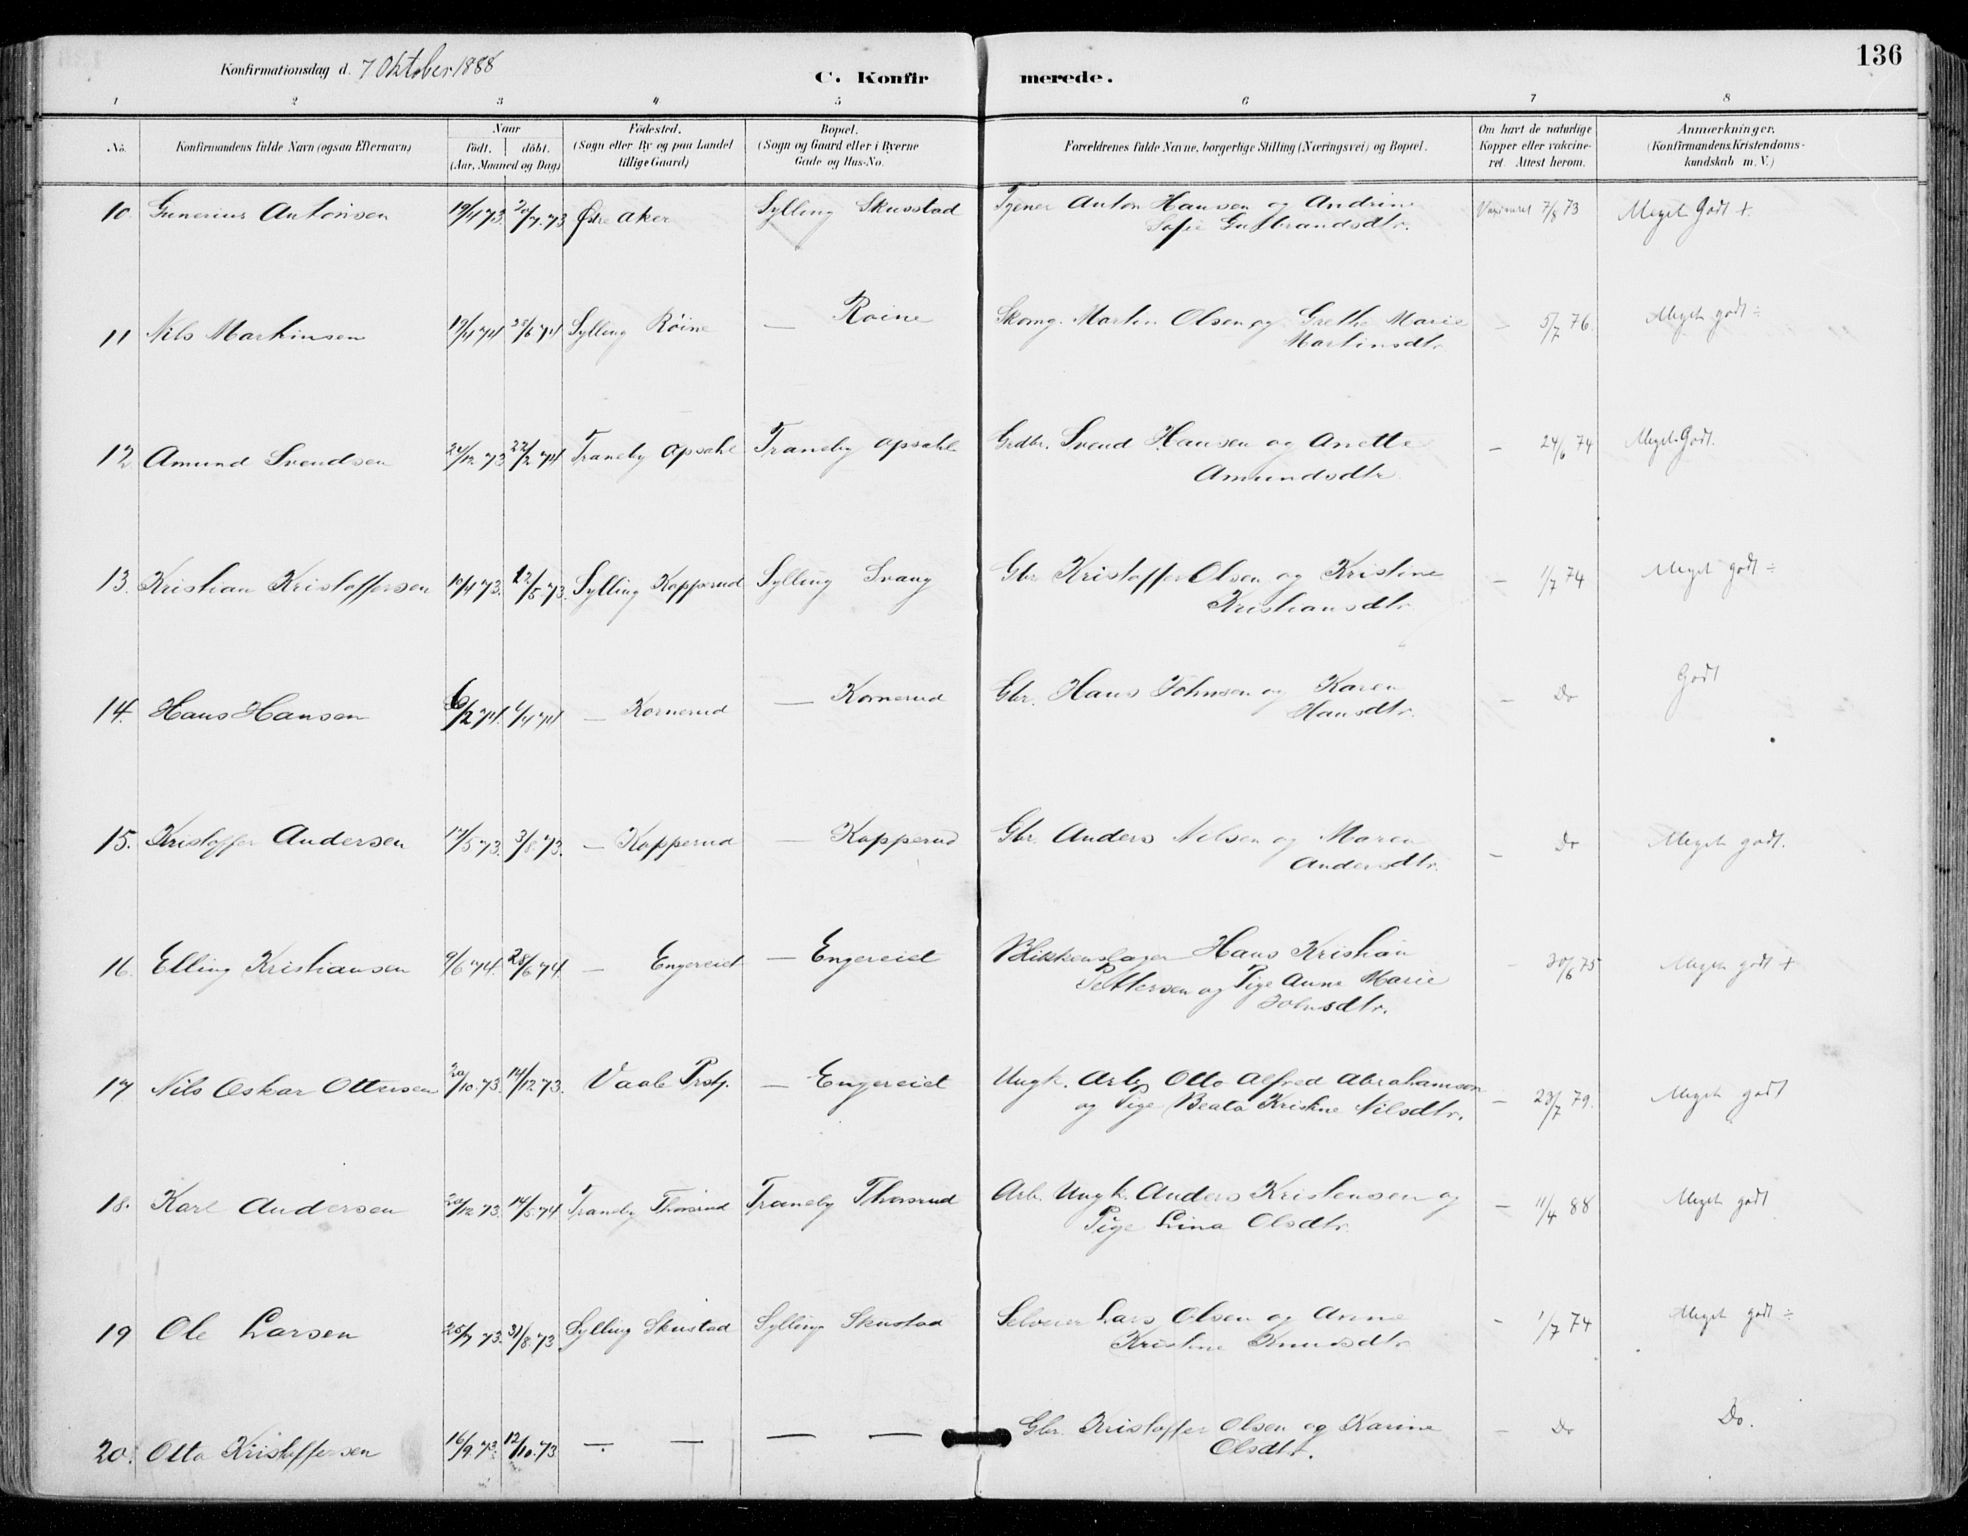 Konfirmationsdag d. 7 Oktober 1888
C. Konfirmerede.
136
1 2 3 4 5 6 7 8
No. Konfirmandens fulde Navn (ogsaa Efternavn) Naar født. døbt. (Aar, Maaned og Dag) Fødested. (Sogn eller By og paa Landet tillige Gaard) Bopæl. (Sogn og Gaard eller i Byerne Gade og Hus-No. Forældrenes fulde Navne, borgerlige Stilling (Næringsvei) og Bopæl. Om havt de naturlige Kopper eller vakcineret. Attest herom. Anmærkninger. (Konfirmandens Kristendomskundskab m. V.)
10. Gunerius Antonsen 19/4 73. 20/7. 73 Østre Aker Sylling Skusstad Tjener Anton Hansen og Andrine 7/8 73 Meget Godt +
Sofie Gulbrandsdtr.
11 Nils Martinsen 19/4 74 28/6 74 Sylling Röine — Roine Skomg. Martin Olsen og Grethe Marie — 5/7 76. Meget godt ÷
Martinsdtr.
12 Amund Svendsen 24/12 73 22/2 74 Traneby Opsahl Traneby Opsahl Grdbr. Svend Hansen og Anette — 24/6 74 Meget Godt.
Amundsdtr.
13. Kristian Kristoffersen 10/4 73. 22/5. 73. Sylling Kopperud Sylling Svang Gbr Kristoffer Olsen og Kristine — 1/7 74 Meget godt ÷
Kristiansdtr.
14. Hans Hansen 6/2 74. 6/4 74. — Kornerud — Kornerud Gbr. Hans Johnsen og Karen — Do Godt
Hansdtr.
15. Kristoffer Andersen 17/5 73. 3/8. 73. — Kopperud — Kopperud Gbr. Anders Nilsen og Maren — Do Meget godt.
Andersdtr.
16 Elling Kristiansen 9/6 74. 28/6 74. — Engereid — Engereid Blikkenslager Hans Kristian — 30/6 75 Meget godt +
Pettersen og Pige Anne Marie
Johnsdtr.
17 Nils Oskar Ottersen 20/10. 73. 14/12 73. Vaale Prstgj. — Engereid Ungk. Arb. Otto Alfred Abrahamsen — 23/7 79. Meget godt
og Pige Beata Kristine Nilsdtr.
18. Karl Andersen 20/12 73. 14/5. 74 Traneby Thorsrud Traneby Thorsrud Arb. Ungk. Anders Kristensen og — 11/4 88 Meget godt
Pige Lina Olsdtr.
19 Ole Larsen 25/7 73. 31/8. 73 Sylling Skustad Sylling Skustad Selveier Lars Olsen og Anne — 1/7 74 Meget godt ÷
Kristine Knudsdtr
20. Otto Kristoffersen 16/9. 73. 12/10. 73 — — — — Gbr. Kristoffer Olsen og Karine — Do Do.
Olsdtr.